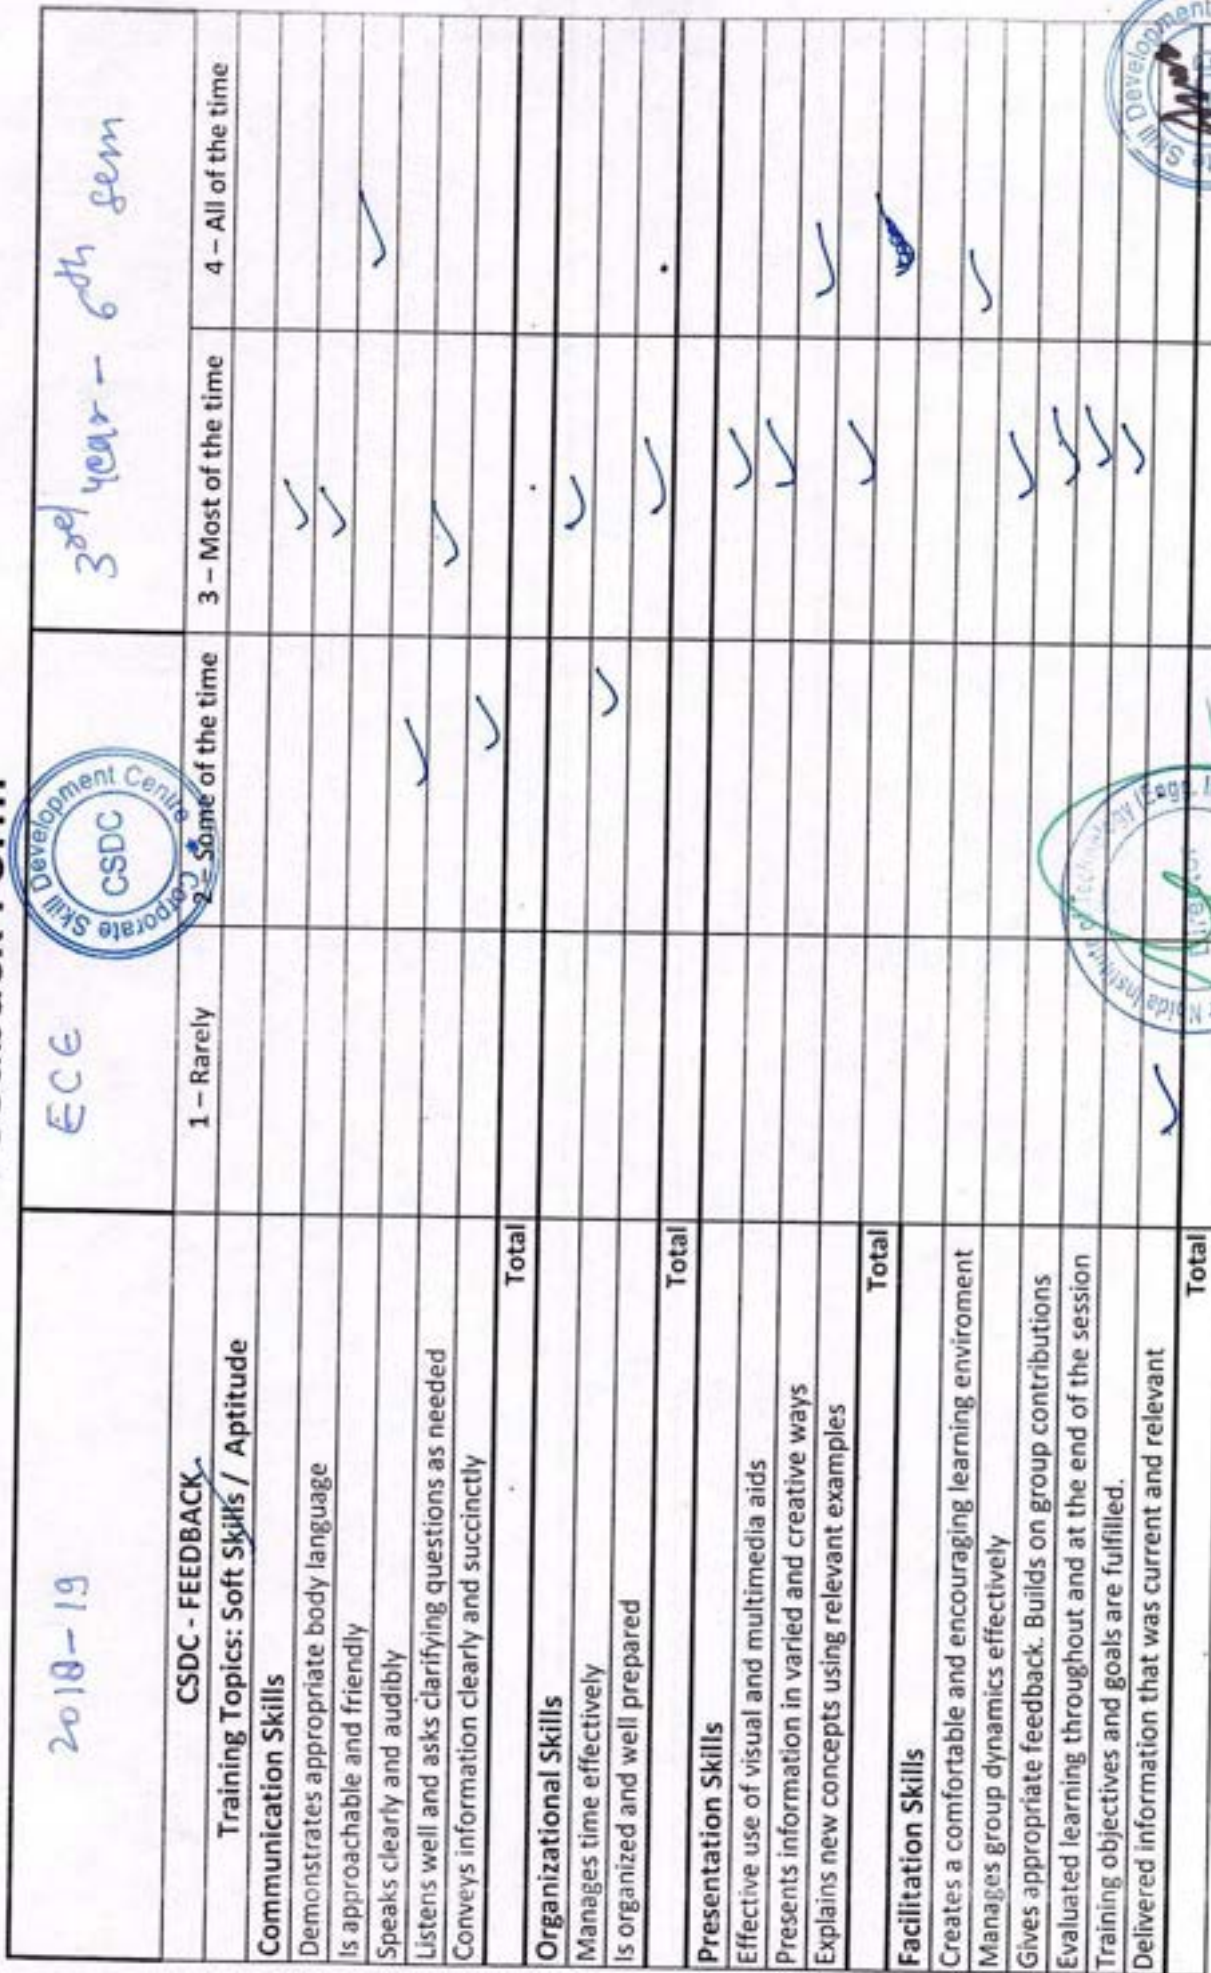 2018-19 ECE 3rd year - 6th sem
Corporate Skill Development Centre
CSDC
CSDC - FEEDBACK 1 – Rarely 2 – Some of the time 3 – Most of the time 4 – All of the time
Training Topics: Soft Skills / Aptitude
Communication Skills
Demonstrates appropriate body language
Is approachable and friendly
Speaks clearly and audibly
Listens well and asks clarifying questions as needed
Conveys information clearly and succinctly
Total
Organizational Skills
Manages time effectively
Is organized and well prepared
Total
Presentation Skills
Effective use of visual and multimedia aids
Presents information in varied and creative ways
Explains new concepts using relevant examples
Total
Facilitation Skills
Creates a comfortable and encouraging learning enviroment
Manages group dynamics effectively
Gives appropriate feedback. Builds on group contributions
Evaluated learning throughout and at the end of the session
Training objectives and goals are fulfilled.
Delivered information that was current and relevant
Total
Noida Institute of Technology (Engg.
Director
Skill Development